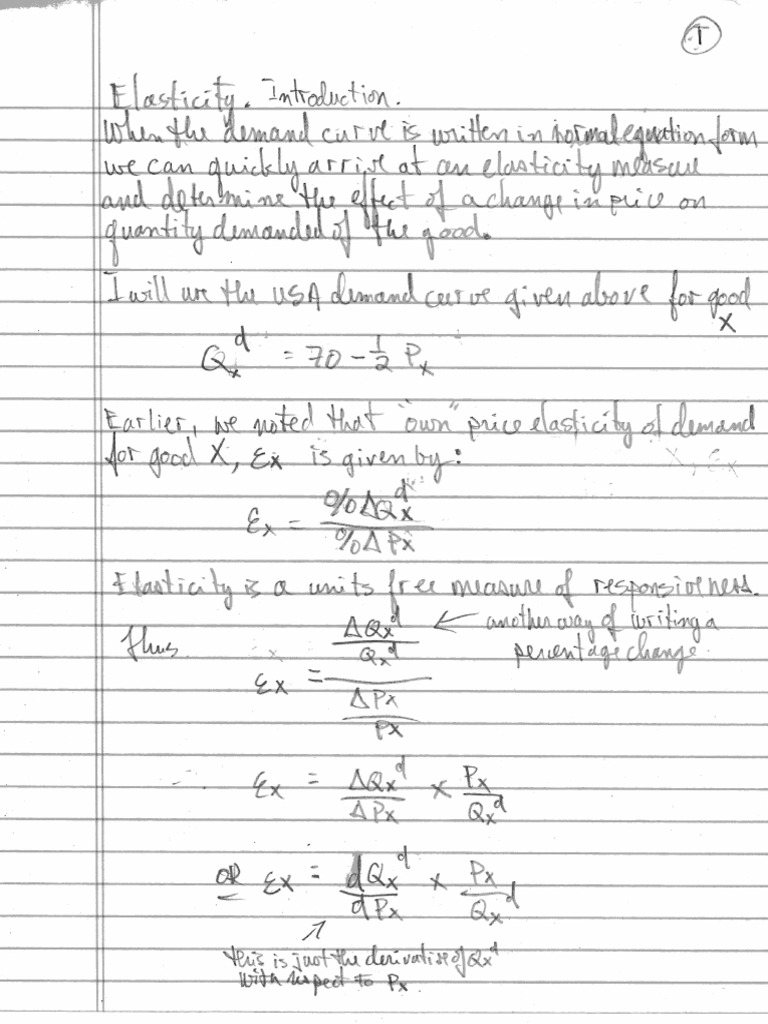 1
Elasticity. Introduction.
When the demand curve is written in normal equation form
we can quickly arrive at an elasticity measure
and determine the effect of a change in price on
quantity demanded of the good.
I will use the USA demand curve given above for good
X
Qₓᵈ = 70 - 1/2 Pₓ
Earlier, we noted that "own" price elasticity of demand
for good X, Ɛx is given by:
X, Ɛx
Ɛx = %ΔQxᵈ / %ΔPx
Elasticity is a units free measure of responsiveness.
Thus Ɛx = (ΔQxᵈ / Qxᵈ) / (ΔPx / Px) ← another way of writing a
percentage change.
∴ Ɛx = ΔQxᵈ / ΔPx × Px / Qxᵈ
OR Ɛx = dQxᵈ / dPx × Px / Qxᵈ
↗
this is just the derivative of Qxᵈ
with respect to Px.